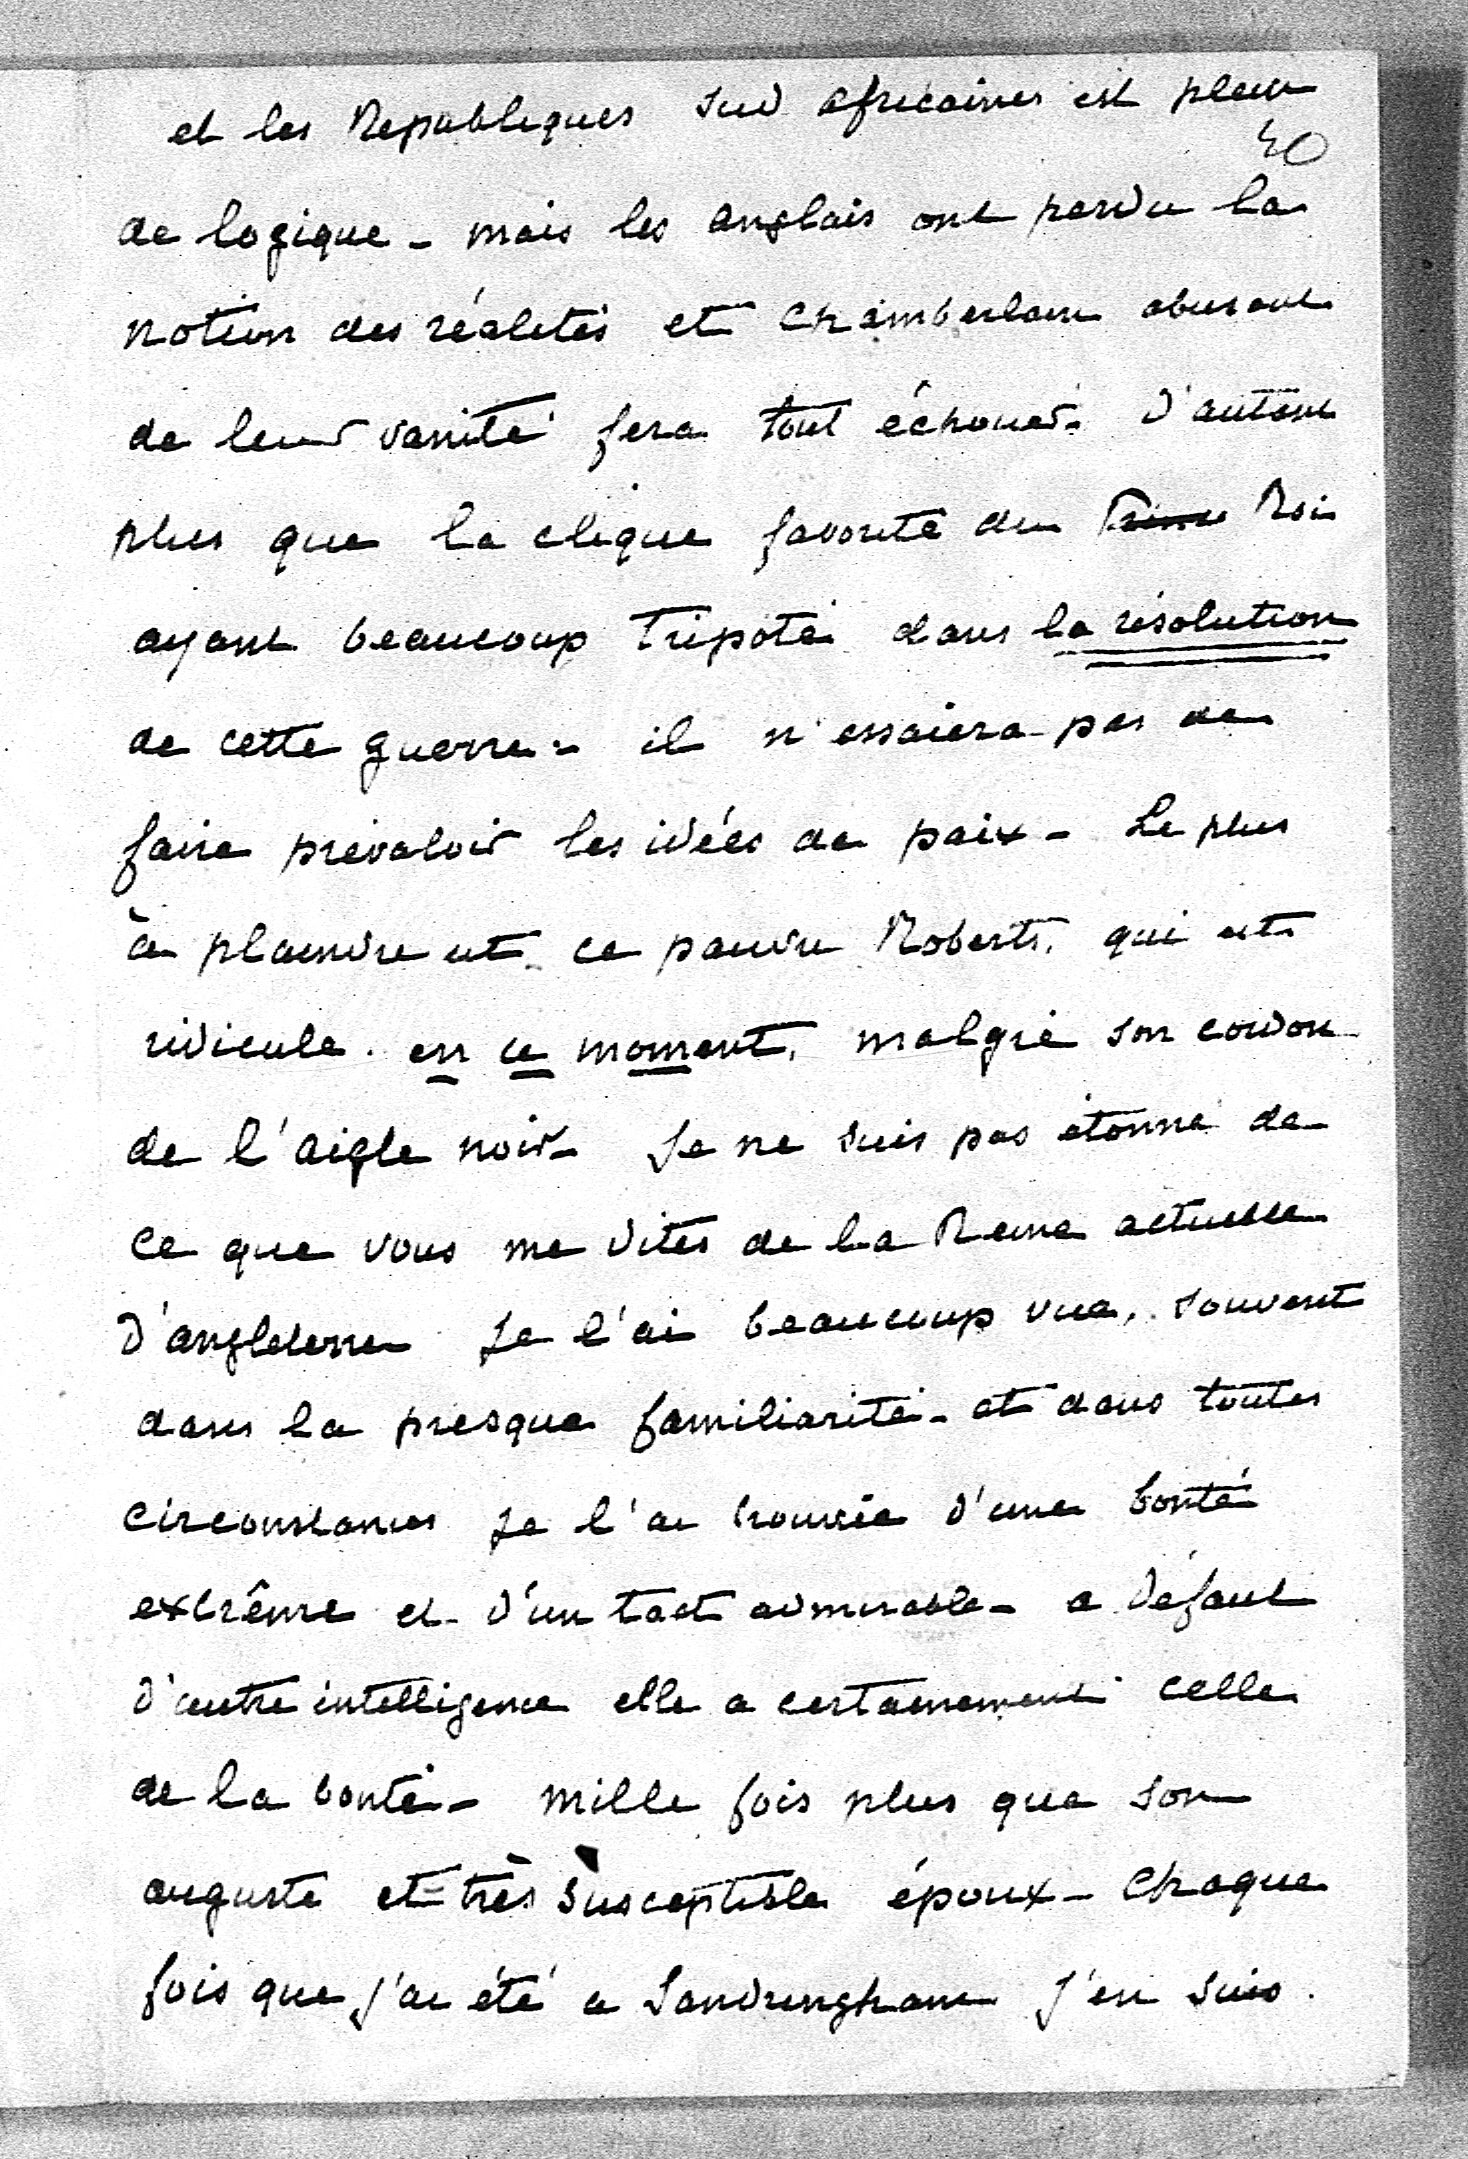 et les Republiques sud africaines est plein
40
de logique - mais les anglais ont perdu la
notion des réalités et Chamberlain abusant
de leur vanité fera tout échouer. D'autant
plus que la clique favorite du Prince Roi
ayant beaucoup tripoté dans la résolution
de cette guerre - il n'essaiera pas de
faire prévaloir les idées de paix - Le plus
à plaindre est ce pauvre Roberts, qui est
ridicule. en ce moment, malgré son cordon
de l'aigle noir - Je ne suis pas étonné de
ce que vous me dites de la Reine actuelle
d'angleterre Je l'ai beaucoup vue, souvent
dans la presque familiarité - et dans toutes
circonstances je l'ai trouvée d'une bonté
extrême et d'un tact admirable - a défaut
d'autre intelligence elle a certainement celle
de la bonté - mille fois plus que son
auguste et très susceptible époux - Chaque
fois que j'ai été a Sandringham j'en suis